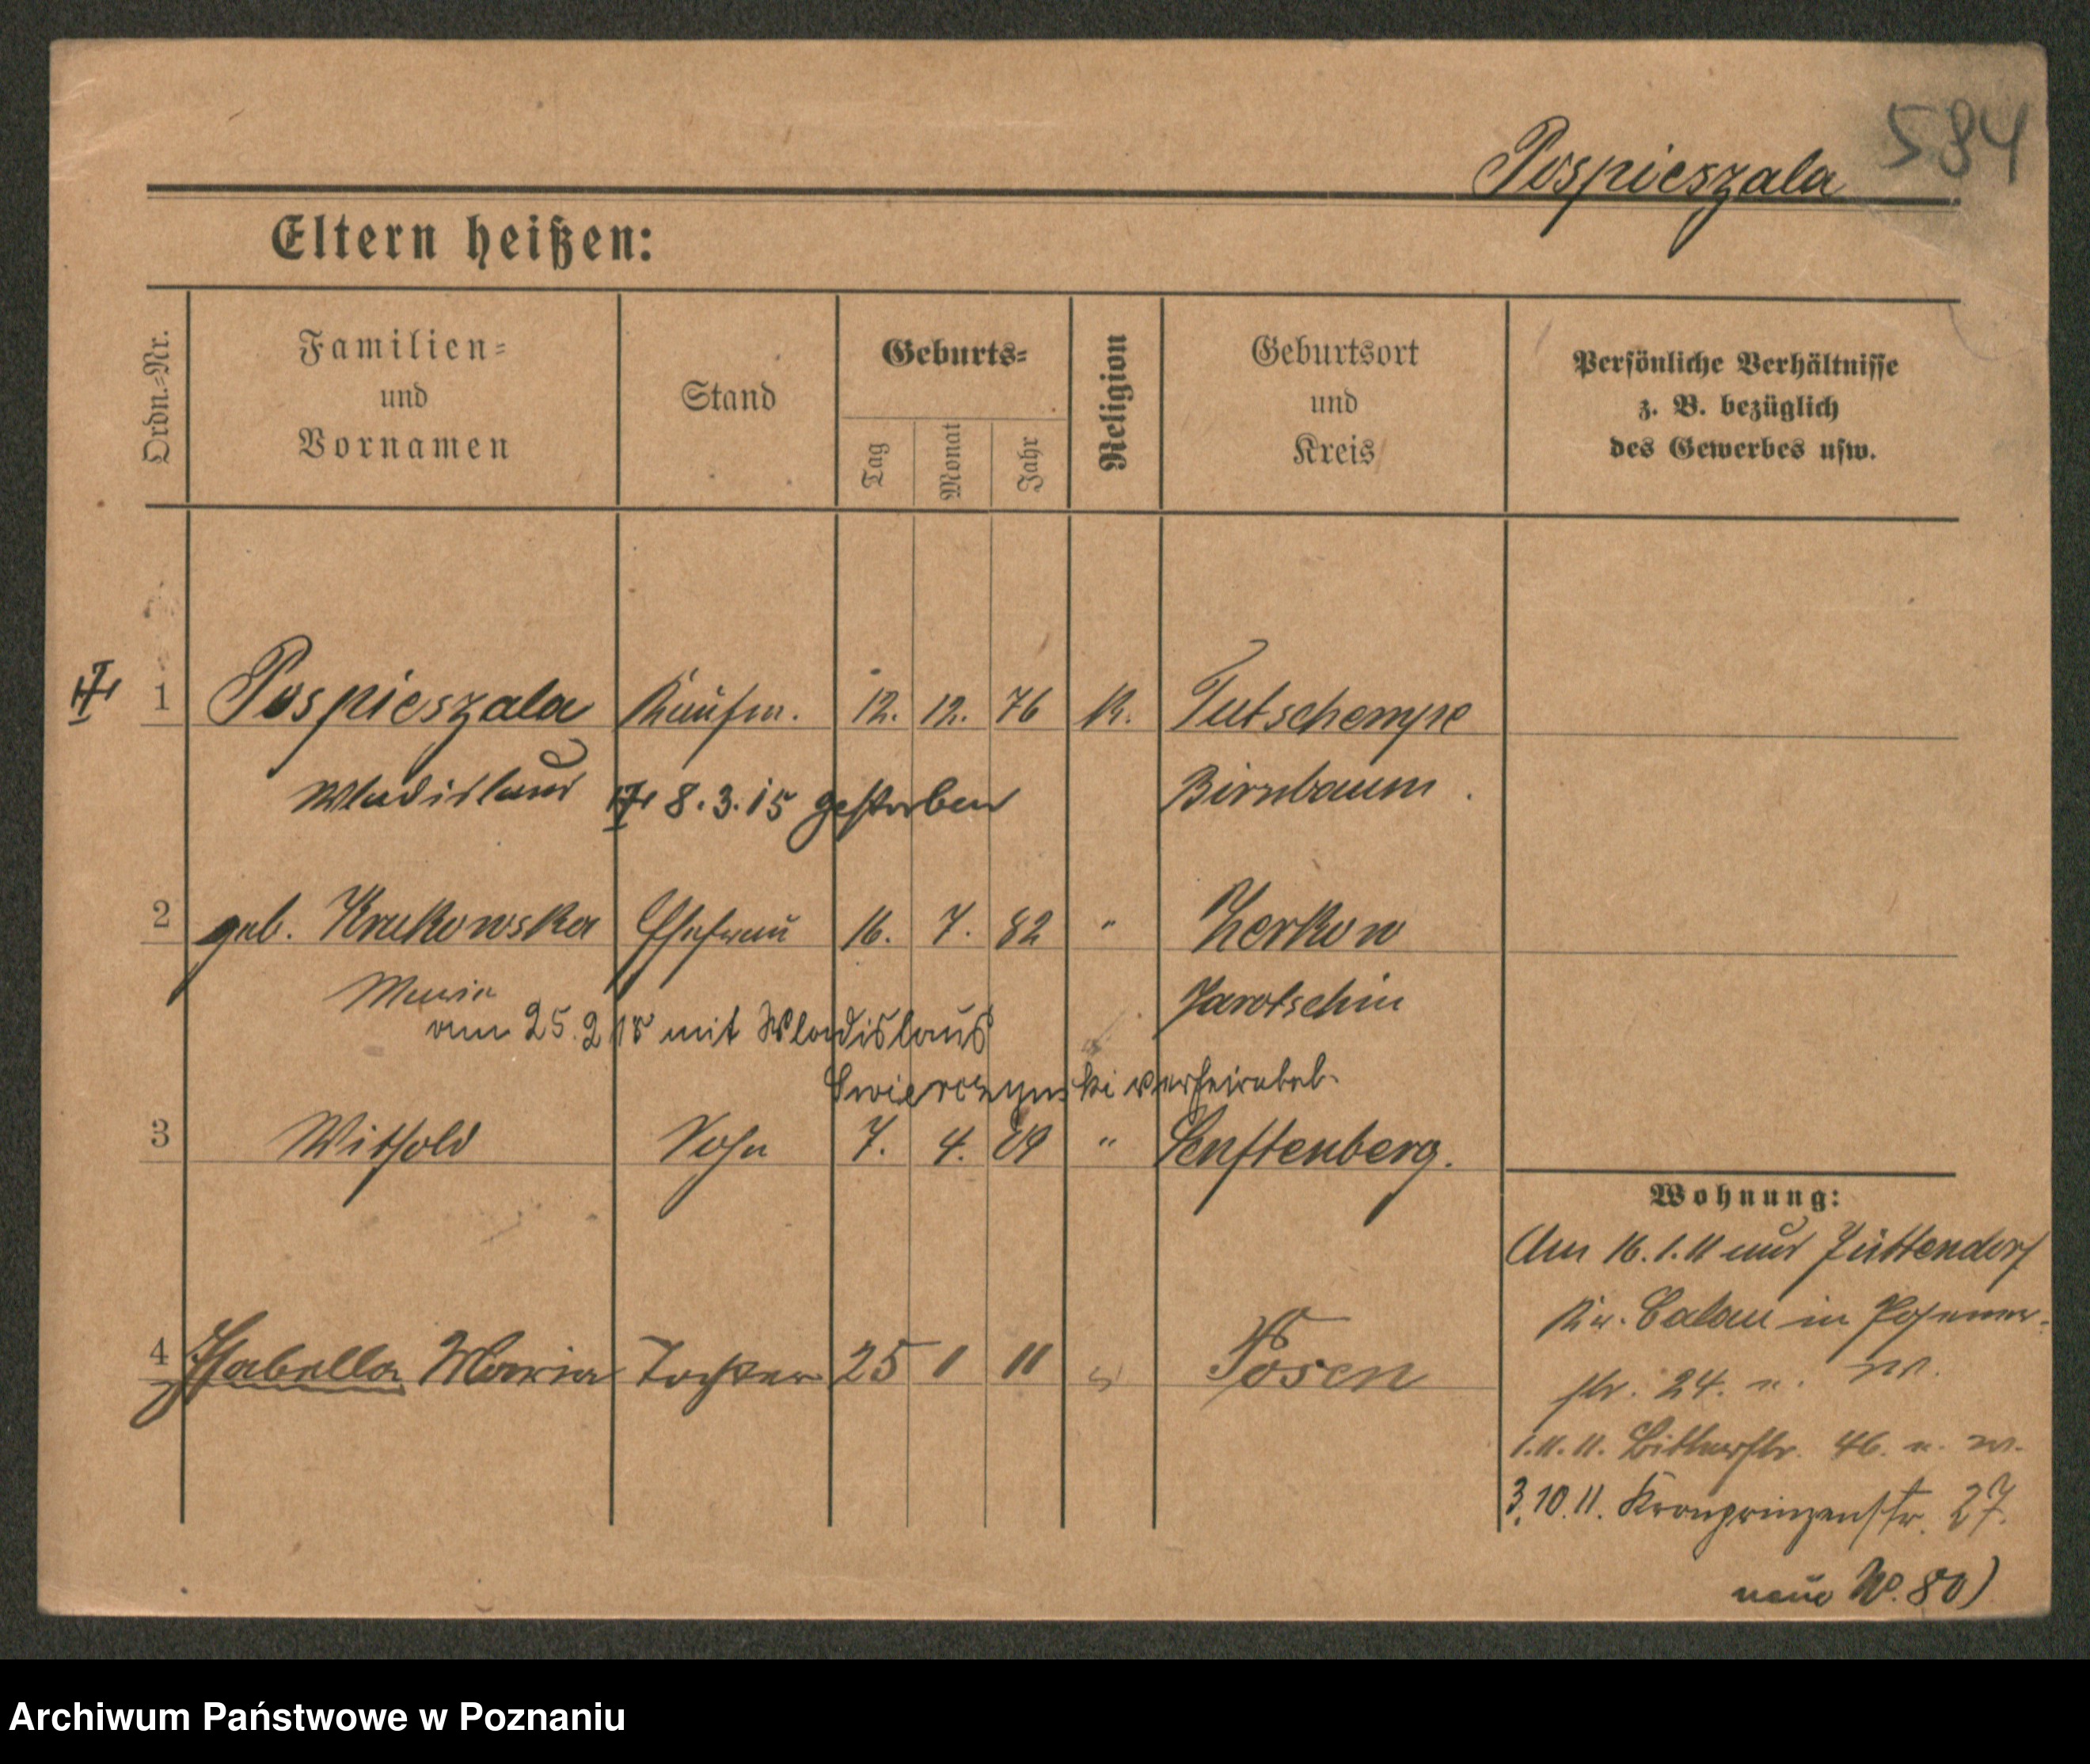 584
Pospieszala
Eltern heißen:
Ordn.-Nr.
Familien-
und
Vornamen
Stand
Geburts-
Tag
Monat
Jahr
Religion
Geburtsort
und
Kreis
Persönliche Verhältnisse
z. B. bezüglich
des Gewerbes usw.
1 Pospieszala Kaufm. 12. 12. 76 K. Tutschempe
Wladislaus 8.3.15 gestorben Birnbaum.
2 geb. Krukowska Ehefrau 16. 7. 82 " Zerkow
Maria Jarotschin
am 25.2.18 mit Wladislaus
Swierczynski verheiratet.
3 Withold Sohn 7. 4. 09 " Senftenberg.
Wohnung:
Am 16.1.11 aus Jüttendorf
Kr. Calau in Posener-
4 Isabella Maria Tochter 25 1 11 " Posen
str. 24.
1.11.11. 46.
3.10.11. Kronprinzenstr. 27.
neue No. 80)
Archiwum Państwowe w Poznaniu